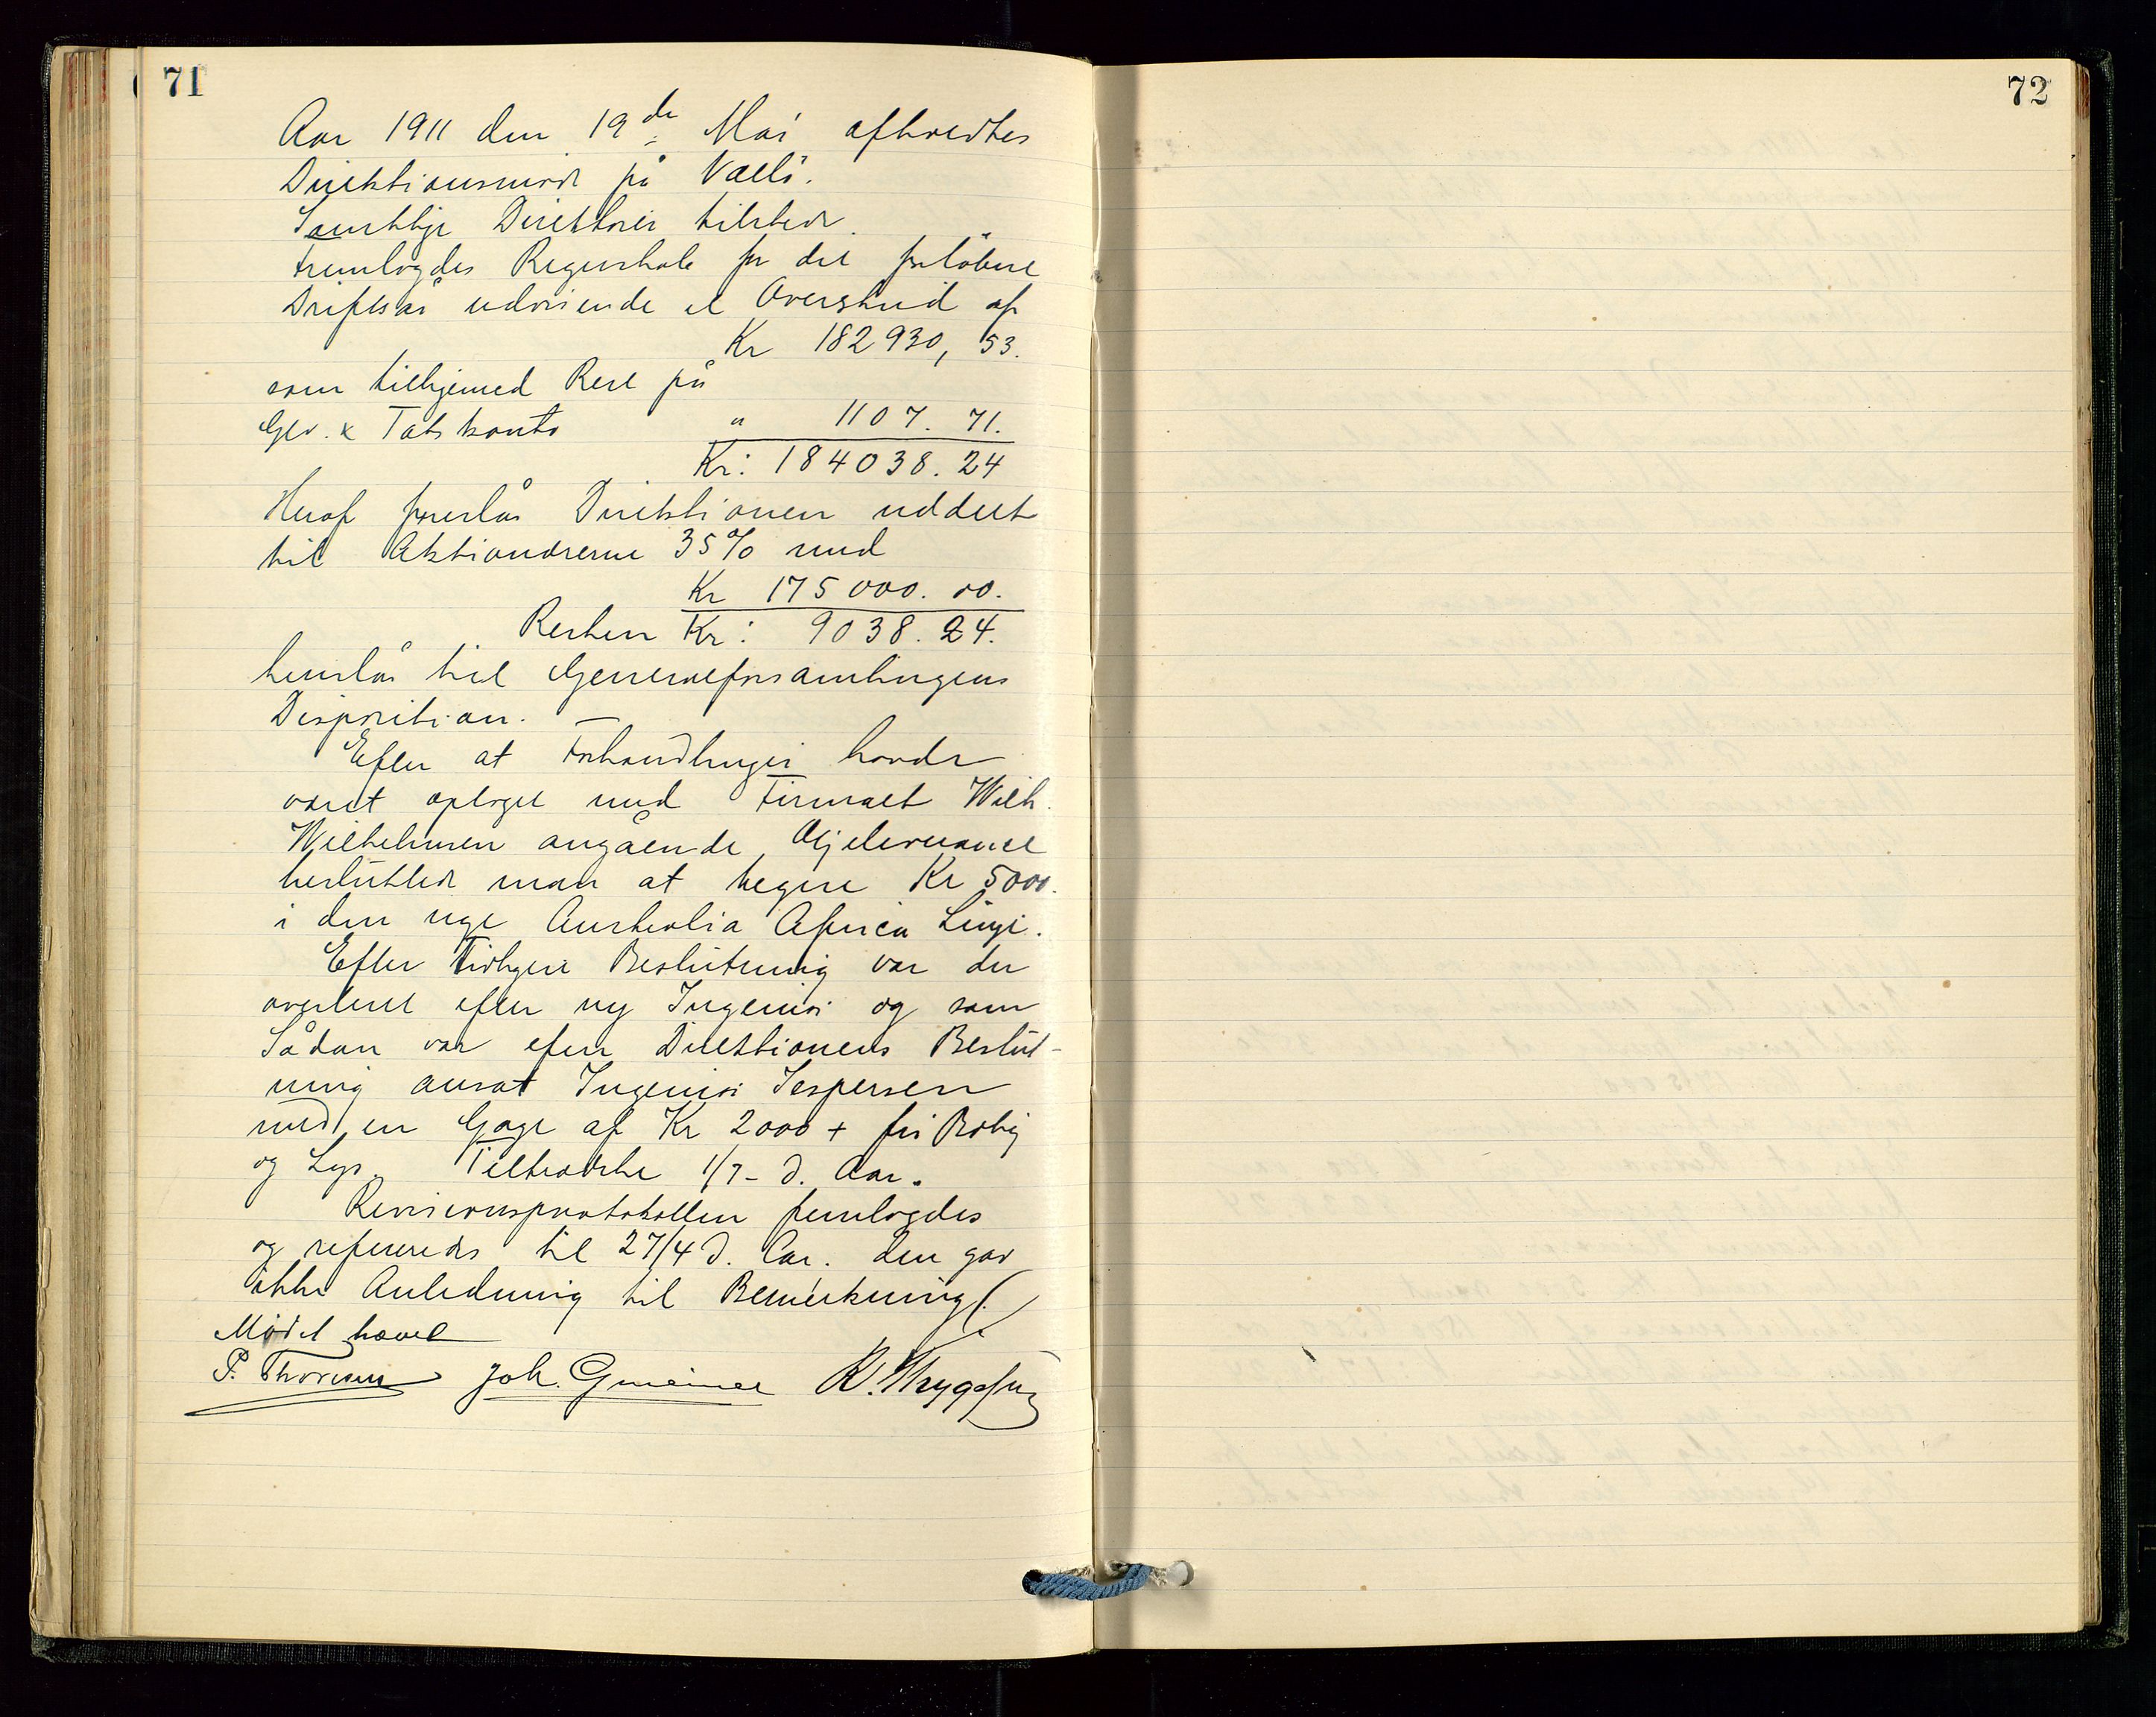 71
72
Aar 1911 den 19de Mai afholdtes
Direktionsmöde på Vallö.
Samtlige Direktörer tilstede.
Fremlagdes Regnskab for det forlöbne
Driftsår udvisende et Overskud af
Kr 182930,53.
som tilligemed Rest på
Gev. & Tabskonto " 1107.71.
Kr: 184038.24
Heraf foreslås Direktionen uddelt
til Aktionærerne 35% med
Kr 175000.00.
Resten Kr: 9038.24.
henstår til Generalforsamlingens
Disposition.
Efter at Forhandlinger havde
været optaget med Firmaet Wilh.
Wilhelmsen angående Oljeleverance
besluttede man at tegne Kr 5000.
i den nye Australia Africa Linje.
Efter tidligere Beslutning var der
averteret efter ny Ingeniör og som
Sådan var efter Direktionens Beslut-
ning ansat Ingeniör Jespersen
med en Gage af Kr 2000 + fri Bolig
og Lys. Tiltrædelse 1/7- d. Aar.
Revisionsprotokollen fremlagdes
og refereredes til 27/4 d. Aar. den gav
ikke Anledning til Bemerkning.
Mödet hævet
P. Thoresen Joh. R. Thygesen